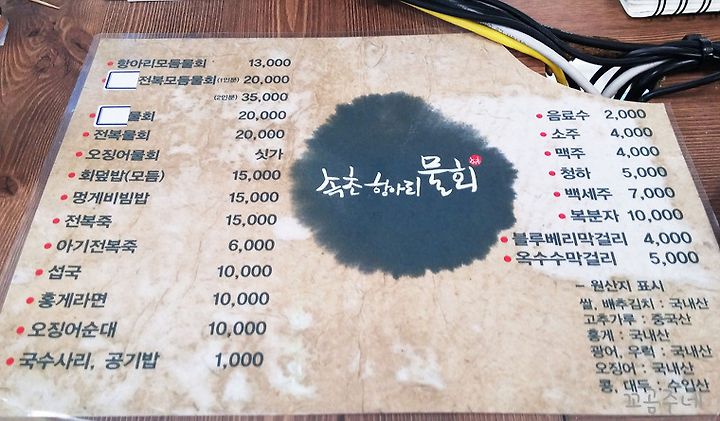 항아리모듬물회 13,000
전복모듬물회 (1인분) 20,000
(2인분) 35,000
물회 20,000
전복물회 20,000
오징어물회 싯가
회덮밥(모듬) 15,000
멍게비빔밥 15,000
전복죽 15,000
아기전복죽 6,000
섭국 10,000
홍게라면 10,000
오징어순대 10,000
국수사리, 공기밥 1,000
속초항아리물회
음료수 2,000
소주 4,000
맥주 4,000
청하 5,000
백세주 7,000
복분자 10,000
블루베리막걸리 4,000
옥수수막걸리 5,000
- 원산지 표시
쌀, 배추김치 : 국내산
고추가루 : 중국산
홍게 : 국내산
광어, 우럭 : 국내산
오징어 : 국내산
콩, 대두 : 수입산
꼬곰주네